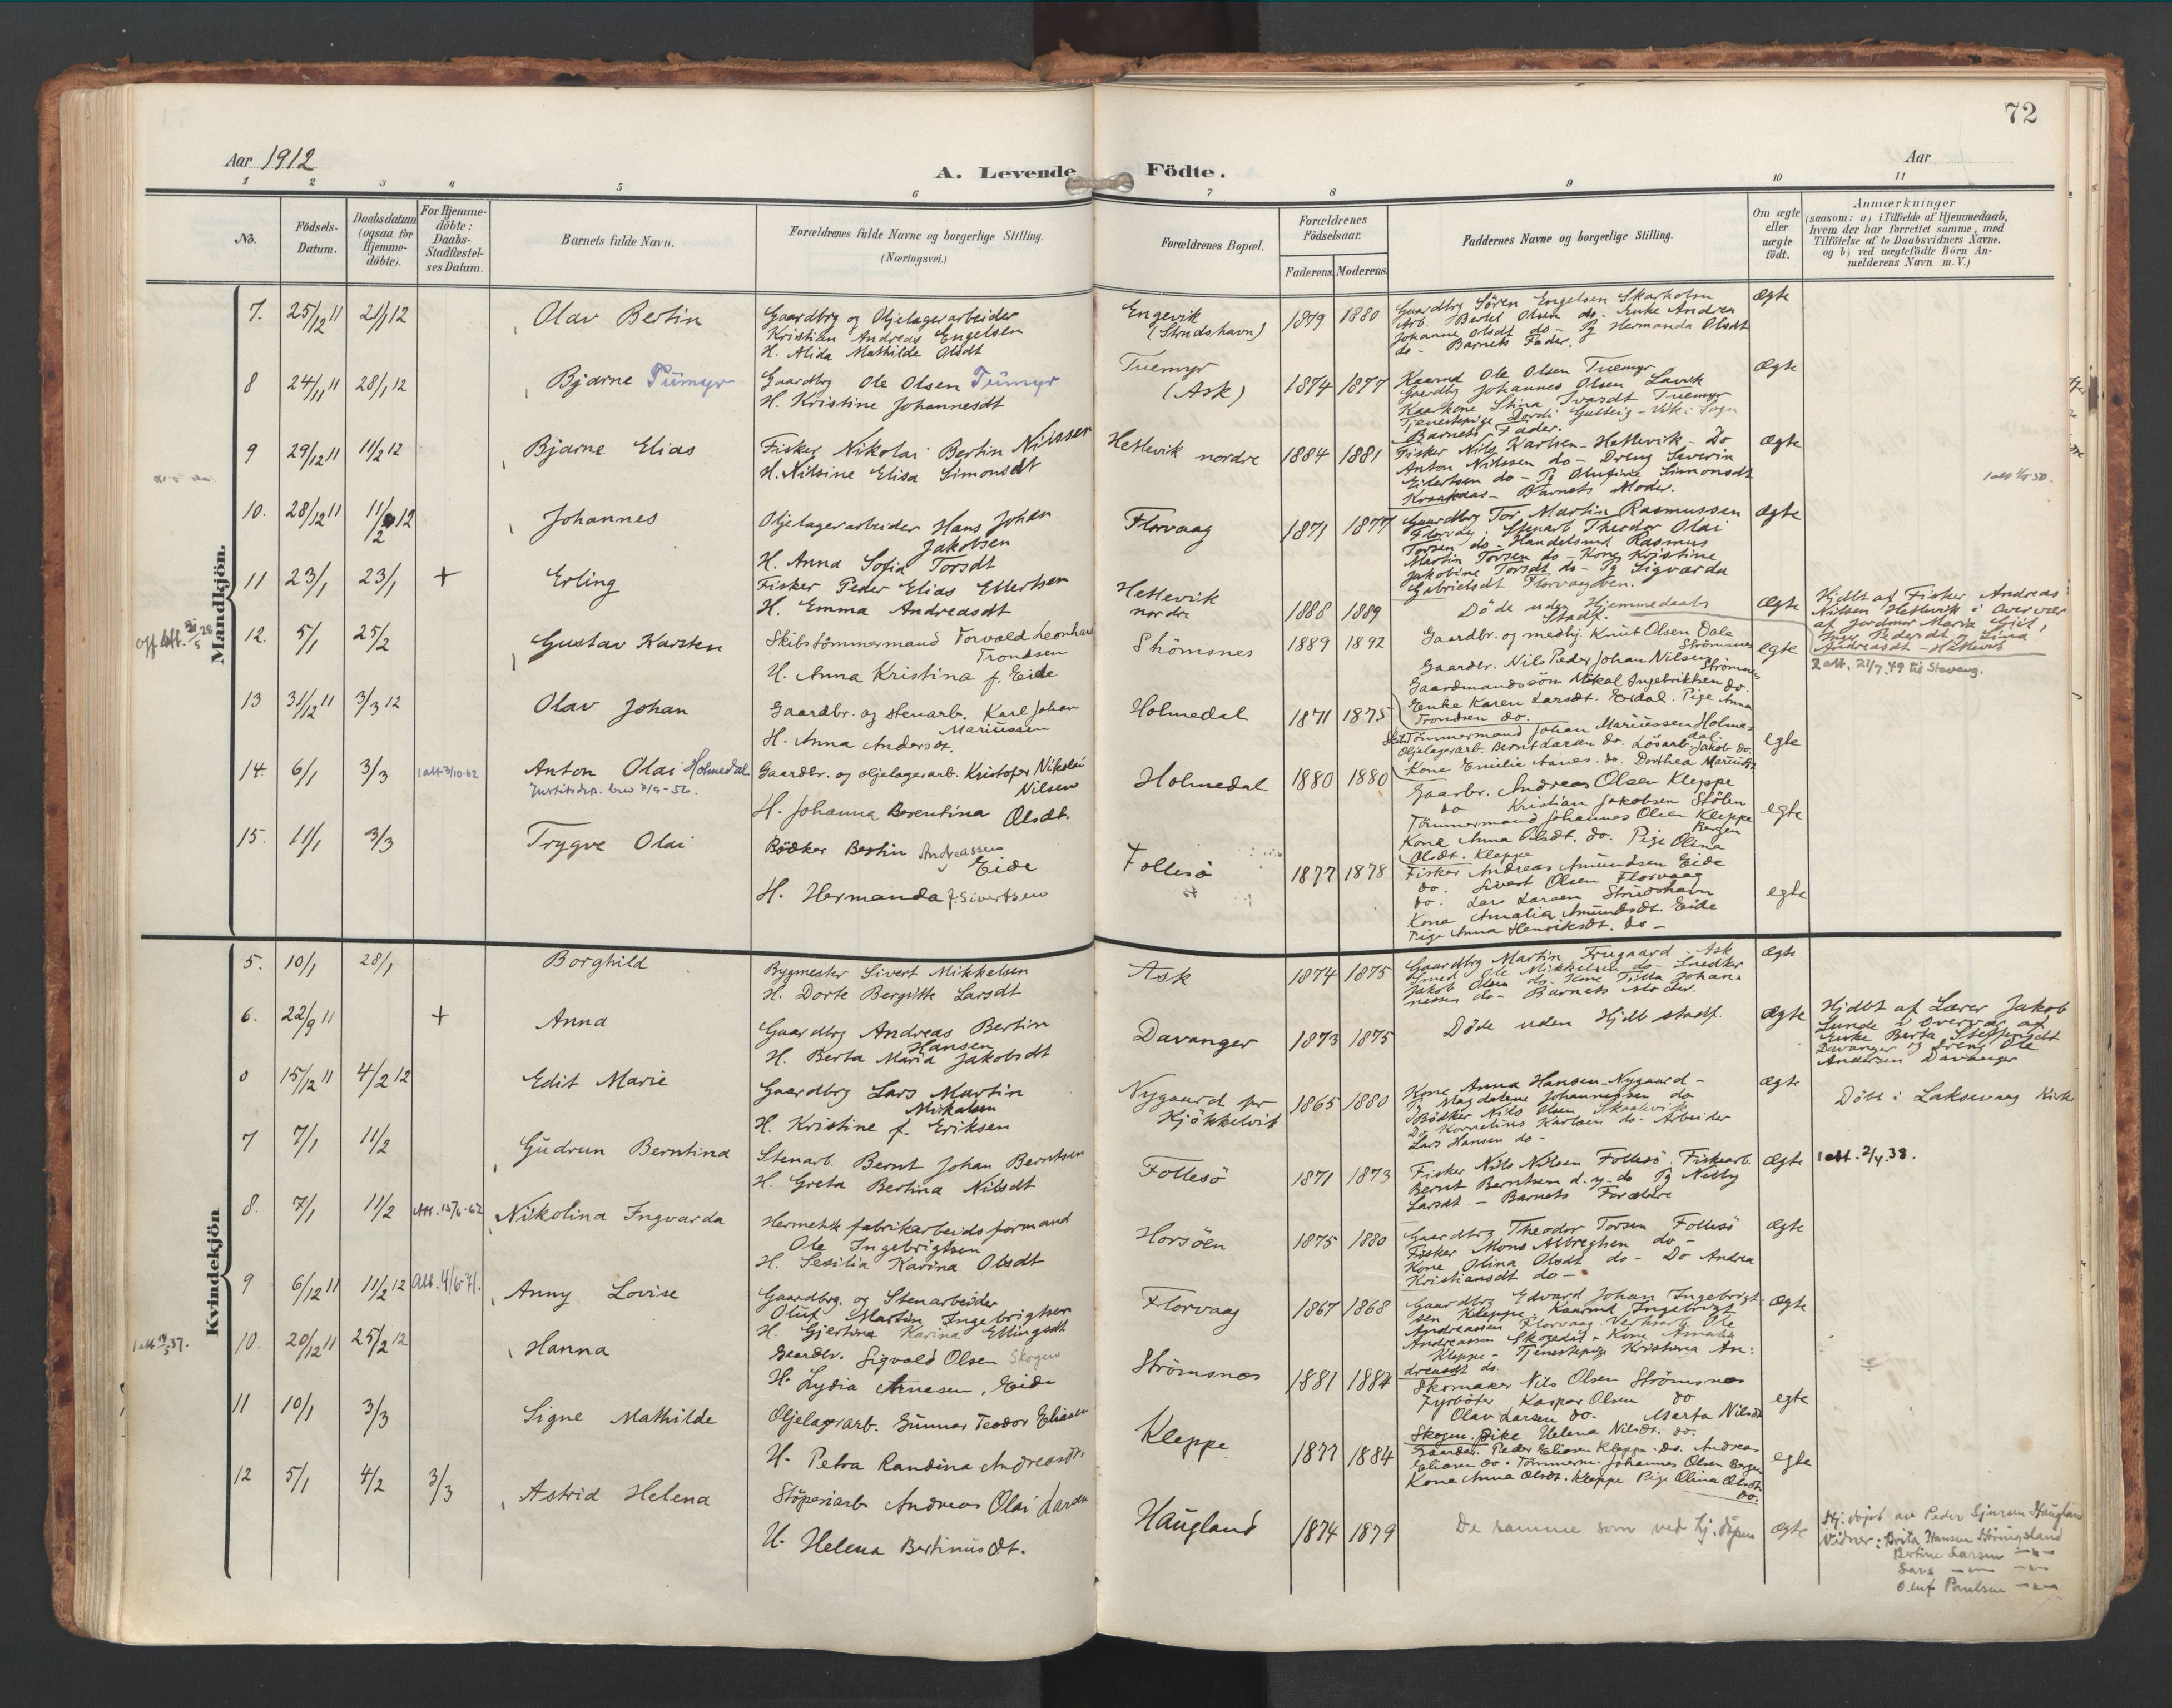 72
Aar 1912
A. Levende Födte.
Aar
1 2 3 4 5 6 7 8 9 10 11
No.
Födsels-Datum.
Daabsdatum (ogsaa for Hjemme-döbte).
For Hjemme-döbte: Daabs-Stadfæstel-ses Datum.
Barnets fulde Navn.
Forældrenes fulde Navne og borgerlige Stilling.
(Næringsvei.)
Forældrenes Bopæl.
Forældrenes Födselsaar.
Faderens. Moderens.
Faddernes Navne og borgerlige Stilling.
Om ægte eller uægte födt.
Anmærkninger
(saasom: a) i Tilfælde af Hjemmedaab,
hvem der har forrettet samme, med
Tilföielse af to Daabsvidners Navne.
og b) ved uægtefödte Börn An-
melderens Navn m. V.)
Mandkjön.
7. 25/12 11 21/1 12 Olav Bertin
Gaardbrg og Oljelagerarbeider
Kristian Andreas Engelsen
H. Alida Mathilde Olsdt
Engevik
(Strudshavn)
1879 1880
Gaardbrg Sören Engelsen Skarholm
Arb. Bertel Olsen do - Enke Andrea
Johanne Olsdt do - Pg Hermanda Olsdt
do - Barnets Fader.
Ægte
8 24/11 11 28/1 12 Bjarne Tuemyr
Gaardbrg Ole Olsen Tuemyr
H. Kristine Johannesdt
Tuemyr
(Ask)
1874 1877
Kaarmd Ole Olsen Tuemyr
Gaardbrg Johannes Olsen Lavik
Kaarkone Stina Ivarsdt Tuemyr
Tjenestepige Dordi Gutteig - Vik i Sogn
Barnets Fader.
Ægte
9 29/12 11 11/2 12 Bjarne Elias
Fisker Nikolai Bertin Nilssen
H. Nilsine Elisa Simonsdt
Hetlevik nordre
1884 1881
Fisker Nils Karlsen - Hetlevik - Do
Anton Nilssen do - Dreng Severin
Eilertsen do - Pg Olufine Simonsdt
Kraakaas - Barnets Moder.
Ægte
10. 28/12 11 11/2 12 Johannes
Oljelagerarbeider Hans Johan
Jakobsen
H. Anna Sofia Torsdt
Florvaag
1871 1877
Gaardbrg Tor Martin Rasmussen
Florvåg - Stenarb Theodor Olai
Torsen do - Handelsmd Rasmus
Martin Torsen do - Kone Kristine
Jakobine Torsdt do - Pg Sigvarda
Gabrielsdt Florvaagöen.
Ægte
11 23/1 23/1 + Erling
Fisker Peder Elias Ellertsen
H. Emma Andreasdt
Hetlevik
nordre
1888 1889
Döde uden Hjemmedaabs
Stadf.
Ægte
Hjdbt af Fisker Andreas
Nilsen Hetlevik i Overvær
af Jordmor Maria Gjil,
Inger Pedersdt og Lina
Andreasdt - Hetlevik
12. 5/1 25/2 Gustav Karsten
Skibstömmermand Torvald Leonhard
Trondsen
H. Anna Kristina f. Eide
Strömsnes
1889 1892
Gaardbr. og medhj. Knut Olsen Dale
Strömsnes
Gaardbr. Nils Peder Johan Nilsen
Strömsnes
Gaardmandssön Mikal Ingebriktsen do.
Enke Karen Larsdt. Eidal. Pige Anna
Trondsen do.
egte
2 att. 21/7.49 til Stavang.
13 31/12 11 3/3 12 Olav Johan
Gaardbr. og stenarb. Karl Johan
Mariussen
H. Anna Andersdt.
Holmedal
1871 1875
Skibstömmermand Johan Mariussen Holme-
dal.
Oljelagerarb. Bernt Larsen do. Lösarb. Jakob do.
Kone Emilie Aanes. do. Dorthea Mariusdt
egte
14. 6/1 3/3 1 att 3/10-62 Anton Olai Holmedal
Justitsdep. brev 7/9-56.
Gaardbr. og oljelagerarb. Kristofer Nikolai
Nilsen
H. Johanna Berentina Olsdt.
Holmedal
1880 1880
Gaarbr. Andreas Olsen Kleppe
do Kristian Jakobsen Stölen
Tömmermand Johannes Olsen Kleppe
Bergen
Kone Anna Olsdt. do. Pige Olina
Olsdt. Kleppe
egte
15. 11/1 3/3 Trygve Olai
Bödker Bertin Andreassen
Eide
H. Hermanda f. Sivertsen
Follesö
1877 1878
Fisker Andreas Amundsen Eide
do. Sivert Olsen Florvaag
do. Lars Larsen Strudshavn
Kone Amalia Amundsdt. Eide
Pige Anna Henriksdt. do -
egte
Kvindekjön
5. 10/1 28/1 Borghild
Bygmester Sivert Mikkelsen
H. Dorte Bergitte Larsdt
Ask
1874 1875
Gaardbrg Martin Fruegaard - Ask
Smed Ole Mikkelsen do - Snedker
Jakob Olsen do - Kone Johan-
nessen do - Barnets Moder.
Ægte
6. 22/9 11 + Anna
Gaardbrg Andreas Bertin
Hansen
H. Berta Maria Jakobsdt
Davanger
1873 1875
Döde uden Hjdb stadf.
Ægte
Hjdbt af Lærer Jakob
Lunde i Overvær af
Enke Berta Steffensdt
Davanger og Dreng Ole
Andersen Davanger
0 15/12 11 4/2 12 Edit Marie
Gaardbrg Lars Martin
Mikalsen
H. Kristine f. Eriksen
Nygaard pr
Kjökkelvik
1865 1880
Kone Anna Hansen - Nygaard -
Pg Magdalene Johannessen do
Bödker Nils Olsen Skaalevik
Do Kornelius Karlsen do - Arbeider
Lars Hansen do -
Ægte
Döbt i Laksevaag Kirke
7 7/1 11/2 Gudrun Berntina
Stenarb. Bernt Johan Berntsen
H. Greta Bertina Nilsdt
Follesö
1871 1873
Fisker Nils Nilsen Follesö. Fiskearb.
Bernt Berntsen d. y. do Pg Nelly
Larsdt - Barnets Forældre
Ægte
1 att. 2/4.38.
8. 7/1 11/2 Att. 15/6-62 Nikolina Ingvarda
Hermetikfabrikarbeidsformand
Ole Ingebrigtsen
H. Sesilia Karina Olsdt
Horsöen
1875 1880
Gaardbrg Theodor Torsen Follesö
Fisker Mons Albregtsen do -
Kone Olina Olsdt do - Do Andrea
Kristiansdt do -
Ægte
9 6/12 11 11/2 12 Att. 4/6-71. Anny Lovise
Gaardbrg. og Stenarbeider
Oluf Martin Ingebrigtsen
H. Gjertina Karina Ellingsdt
Florvaag
1867 1868
Gaardbrg Edvard Johan Ingebrigt-
sen Kleppe. Kaarmd Ingebrigt
Andreassen Florvaag. Ole
Andreassen Skogedal - Kone Amalia
Kleppe - Tjenestepige Kristina An-
dreasdt do.
Ægte
10. 20/12 11 25/2 12 Hanna
Gaardbr. Sigvald Olsen Skogen
H. Lydia Arnesen, Eide
Strömsnes
1881 1884
Skomaker Nils Olsen Strömsnes
Fyrböter Kaspar Olsen do
Olav Larsen do. Marta Nilsdt
Skogen. Pike Helena Nilsdt. do.
egte
11 10/1 3/3 Signe Mathilde
Oljelagerarb. Gunnar Teodor Eliasen
H. Petra Randina Andreasdt.
Kleppe
1877 1884
Gaardbr. Peder Eliasen Kleppe. do. Andreas
Eliasen do. Tömmerm. Johannes Olsen Bergen
Kone Anna Olsdt. Kleppe Pige Olina Olsdt
do.
egte
12 5/1 4/2 3/3 Astrid Helena
Stöperiarb Andreas Olai Larsen
H. Helena Bertinusdt.
Haugland
1874 1879
De samme som ved hj. dåpen
ægte
Hj. döpt av Peder Sjursen Haugland
Vidner: Brita Hansen
Bertine Larsen - " -
Lars - " - - " -
Oluf Paulsen - " -